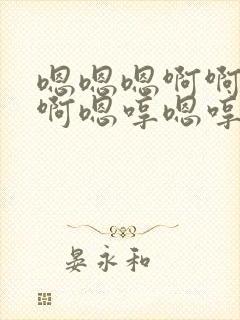 嗯嗯嗯啊啊
啊嗯哼嗯哼
晏永和